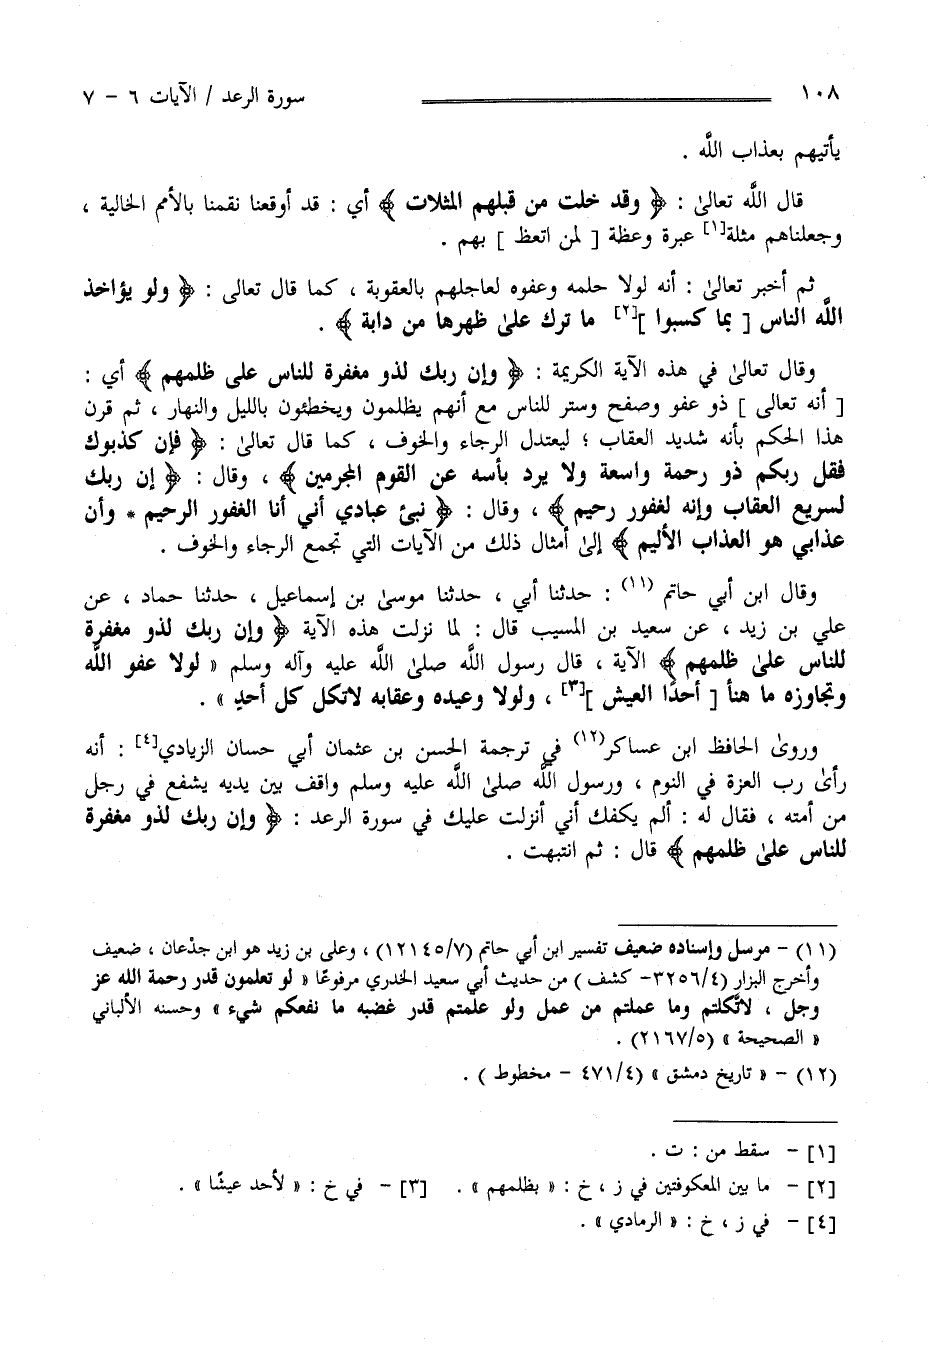 ١٠٨ سورة الرعد / الآيات ٦ - ٧
يأتيهم بعذاب اللَّه .
قال اللَّه تعالىٰ : ﴿ وقد خلت من قبلهم المثلات ﴾ أي : قد أوقعنا نقمنا بالأمم الخالية ،
وجعلناهم مثلة[١] عبرة وعظة [ لمن اتعظ ] بهم .
ثم أخبر تعالىٰ : أنه لولا حلمه وعفوه لعاجلهم بالعقوبة ، كما قال تعالى : ﴿ ولو يؤاخذ
اللَّه الناس [ بما كسبوا ][٢] ما ترك علىٰ ظهرها من دابة ﴾ .
وقال تعالىٰ في هذه الآية الكريمة : ﴿ وإن ربك لذو مغفرة للناس على ظلمهم ﴾ أي :
[ أنه تعالى ] ذو عفو وصفح وستر للناس مع أنهم يظلمون ويخطئون بالليل والنهار ، ثم قرن
هذا الحكم بأنه شديد العقاب ؛ ليعتدل الرجاء والخوف ، كما قال تعالىٰ : ﴿ فإن كذبوك
فقل ربكم ذو رحمة واسعة ولا يرد بأسه عن القوم المجرمين ﴾ ، وقال : ﴿ إن ربك
لسريع العقاب وإنه لغفور رحيم ﴾ ، وقال : ﴿ نبئ عبادي أني أنا الغفور الرحيم * وأن
عذابي هو العذاب الأليم ﴾ إلىٰ أمثال ذلك من الآيات التي تجمع الرجاء والخوف .
وقال ابن أبي حاتم (١١) : حدثنا أبي ، حدثنا موسىٰ بن إسماعيل ، حدثنا حماد ، عن
علي بن زيد ، عن سعيد بن المسيب قال : لما نزلت هذه الآية ﴿ وإن ربك لذو مغفرة
للناس علىٰ ظلمهم ﴾ الآية ، قال رسول اللَّه صلىٰ اللَّه عليه وآله وسلم « لولا عفو اللَّه
وتجاوزه ما هنأ [ أحدًا العيش ][٣] ، ولولا وعيده وعقابه لاتكل كل أحدٍ » .
وروىٰ الحافظ ابن عساكر(١٢) في ترجمة الحسن بن عثمان أبي حسان الزيادي[٤] : أنه
رأىٰ رب العزة في النوم ، ورسول اللَّه صلىٰ اللَّه عليه وسلم واقف بين يديه يشفع في رجل
من أمته ، فقال له : ألم يكفك أني أنزلت عليك في سورة الرعد : ﴿ وإن ربك لذو مغفرة
للناس علىٰ ظلمهم ﴾ قال : ثم انتبهت .
(١١) - مرسل وإسناده ضعيف تفسير ابن أبي حاتم (١٢١٤٥/٧) ، وعلى بن زيد هو ابن جدْعان ، ضعيف
وأخرج البزار (٣٢٥٦/٤- كشف ) من حديث أبي سعيد الخدري مرفوعًا « لو تعلمون قدر رحمة الله عز
وجل ، لاتَّكلتم وما عملتم من عمل ولو علمتم قدر غضبه ما نفعكم شيء » وحسنه الألباني
« الصحيحة » (٢١٦٧/٥) .
(١٢) - « تاريخ دمشق » (٤٧١/٤ - مخطوط ) .
[١] - سقط من : ت .
[٢] - ما بين المعكوفتين في ز ، خ : « بظلمهم » . [٣] - في خ : « لأحد عيشًا » .
[٤] - في ز ، خ : « الرمادي » .